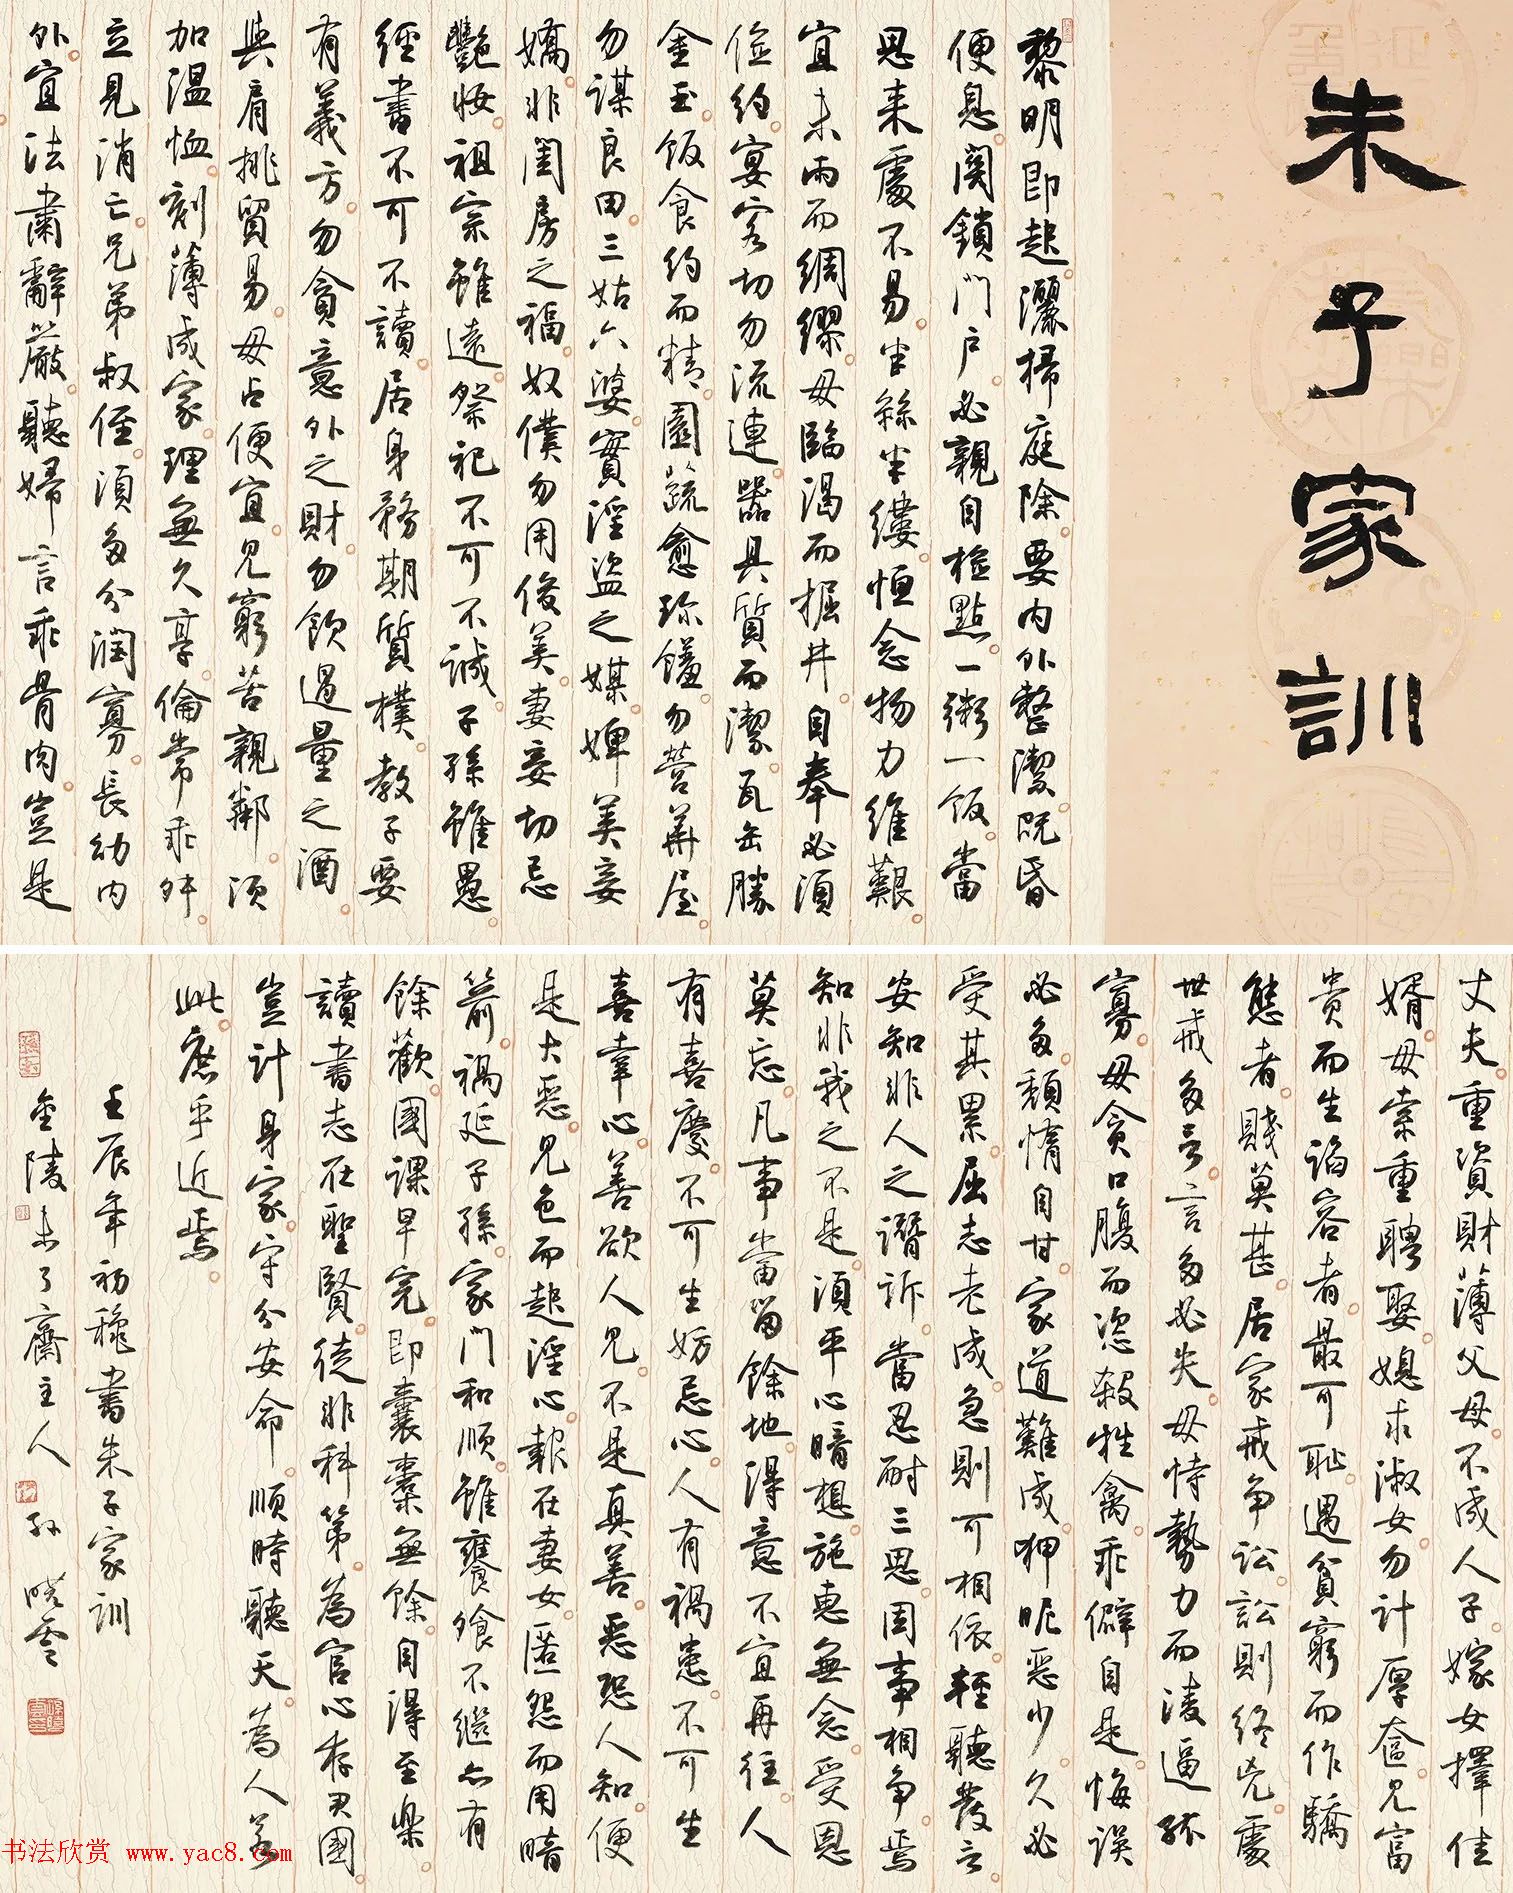 朱子家訓
黎明即起灑掃庭除要内外整潔既昏
便息関鎖門户必親自檢點一粥一飯當
思来處不易半絲半縷恒念物力維艱
宜未雨而綢繆毋臨渴而掘井自奉必須
儉約宴客切勿流連器具質而潔瓦缶勝
金玉飯食約而精園蔬愈珍饈勿營華屋
勿謀良田三姑六婆實淫盗之媒婢美妾
嬌非閨房之福奴僕勿用俊美妻妾切忌
艷妝祖宗雖遠祭祀不可不誠子孫雖愚
經書不可不讀居身務期質樸教子要
有義方勿貪意外之財勿飲過量之酒
與肩挑貿易毋占便宜見窮苦親鄰須
加温恤刻薄成家理無久享倫常乖舛
立見消亡兄弟叔侄須多分潤寡長幼内
外宜法肅辭嚴聽婦言乖骨肉豈是
丈夫重資財薄父母不成人子嫁女擇佳
婿毋索重聘娶媳求淑女勿計厚奩見富
贵而生谄容者最可恥遇貧窮而作驕
態者賤莫甚居家戒争訟訟則終兇處
世戒多言言多必失毋恃勢力而淩逼孤
寡毋貪口腹而恣殺牲禽乖僻自是悔誤
必多頹惰自甘家道難成狎昵惡少久必
受其累屈志老成急則可相依輕聽發言
安知非人之譖訴當忍耐三思因事相争焉
知非我之不是須平心暗想施惠無念受恩
莫忘凡事當留餘地得意不宜再往人
有喜慶不可生妒忌心人有禍患不可生
喜幸心善欲人見不是真善惡恐人知便
是大惡見色而起淫心報在妻女匿怨而用暗
箭禍延子孫家門和順雖饔飧不繼亦有
餘歡國課早完即囊橐無餘自得至樂
讀書志在聖賢徒非科第為官心存君國
豈計身家守分安命順時聽天為人若
此庶乎近焉
壬辰年初秋書朱子家訓
金陵未了齋主人 孙曉雲
书法欣赏 www.yac8.com